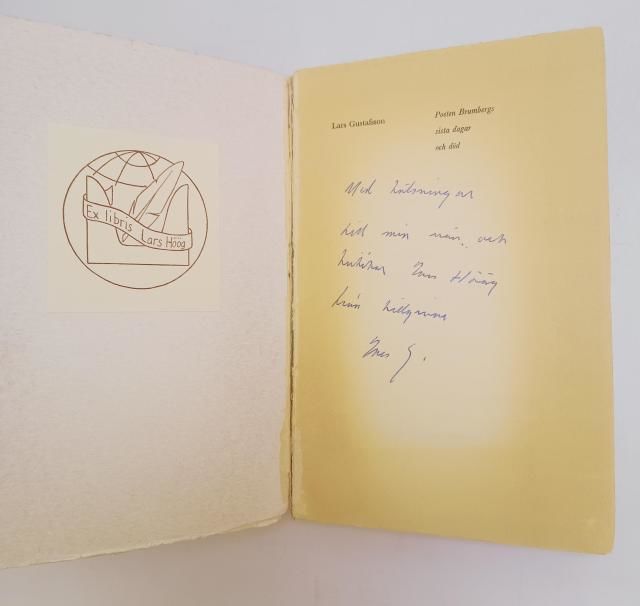 Ex libris Lars Höög
Lars Gustafsson
Poeten Brumbergs
sista dagar
och död
Med hälsningar
till min vän och
kritiker Lars Höög
från tillgivne
Lars G.